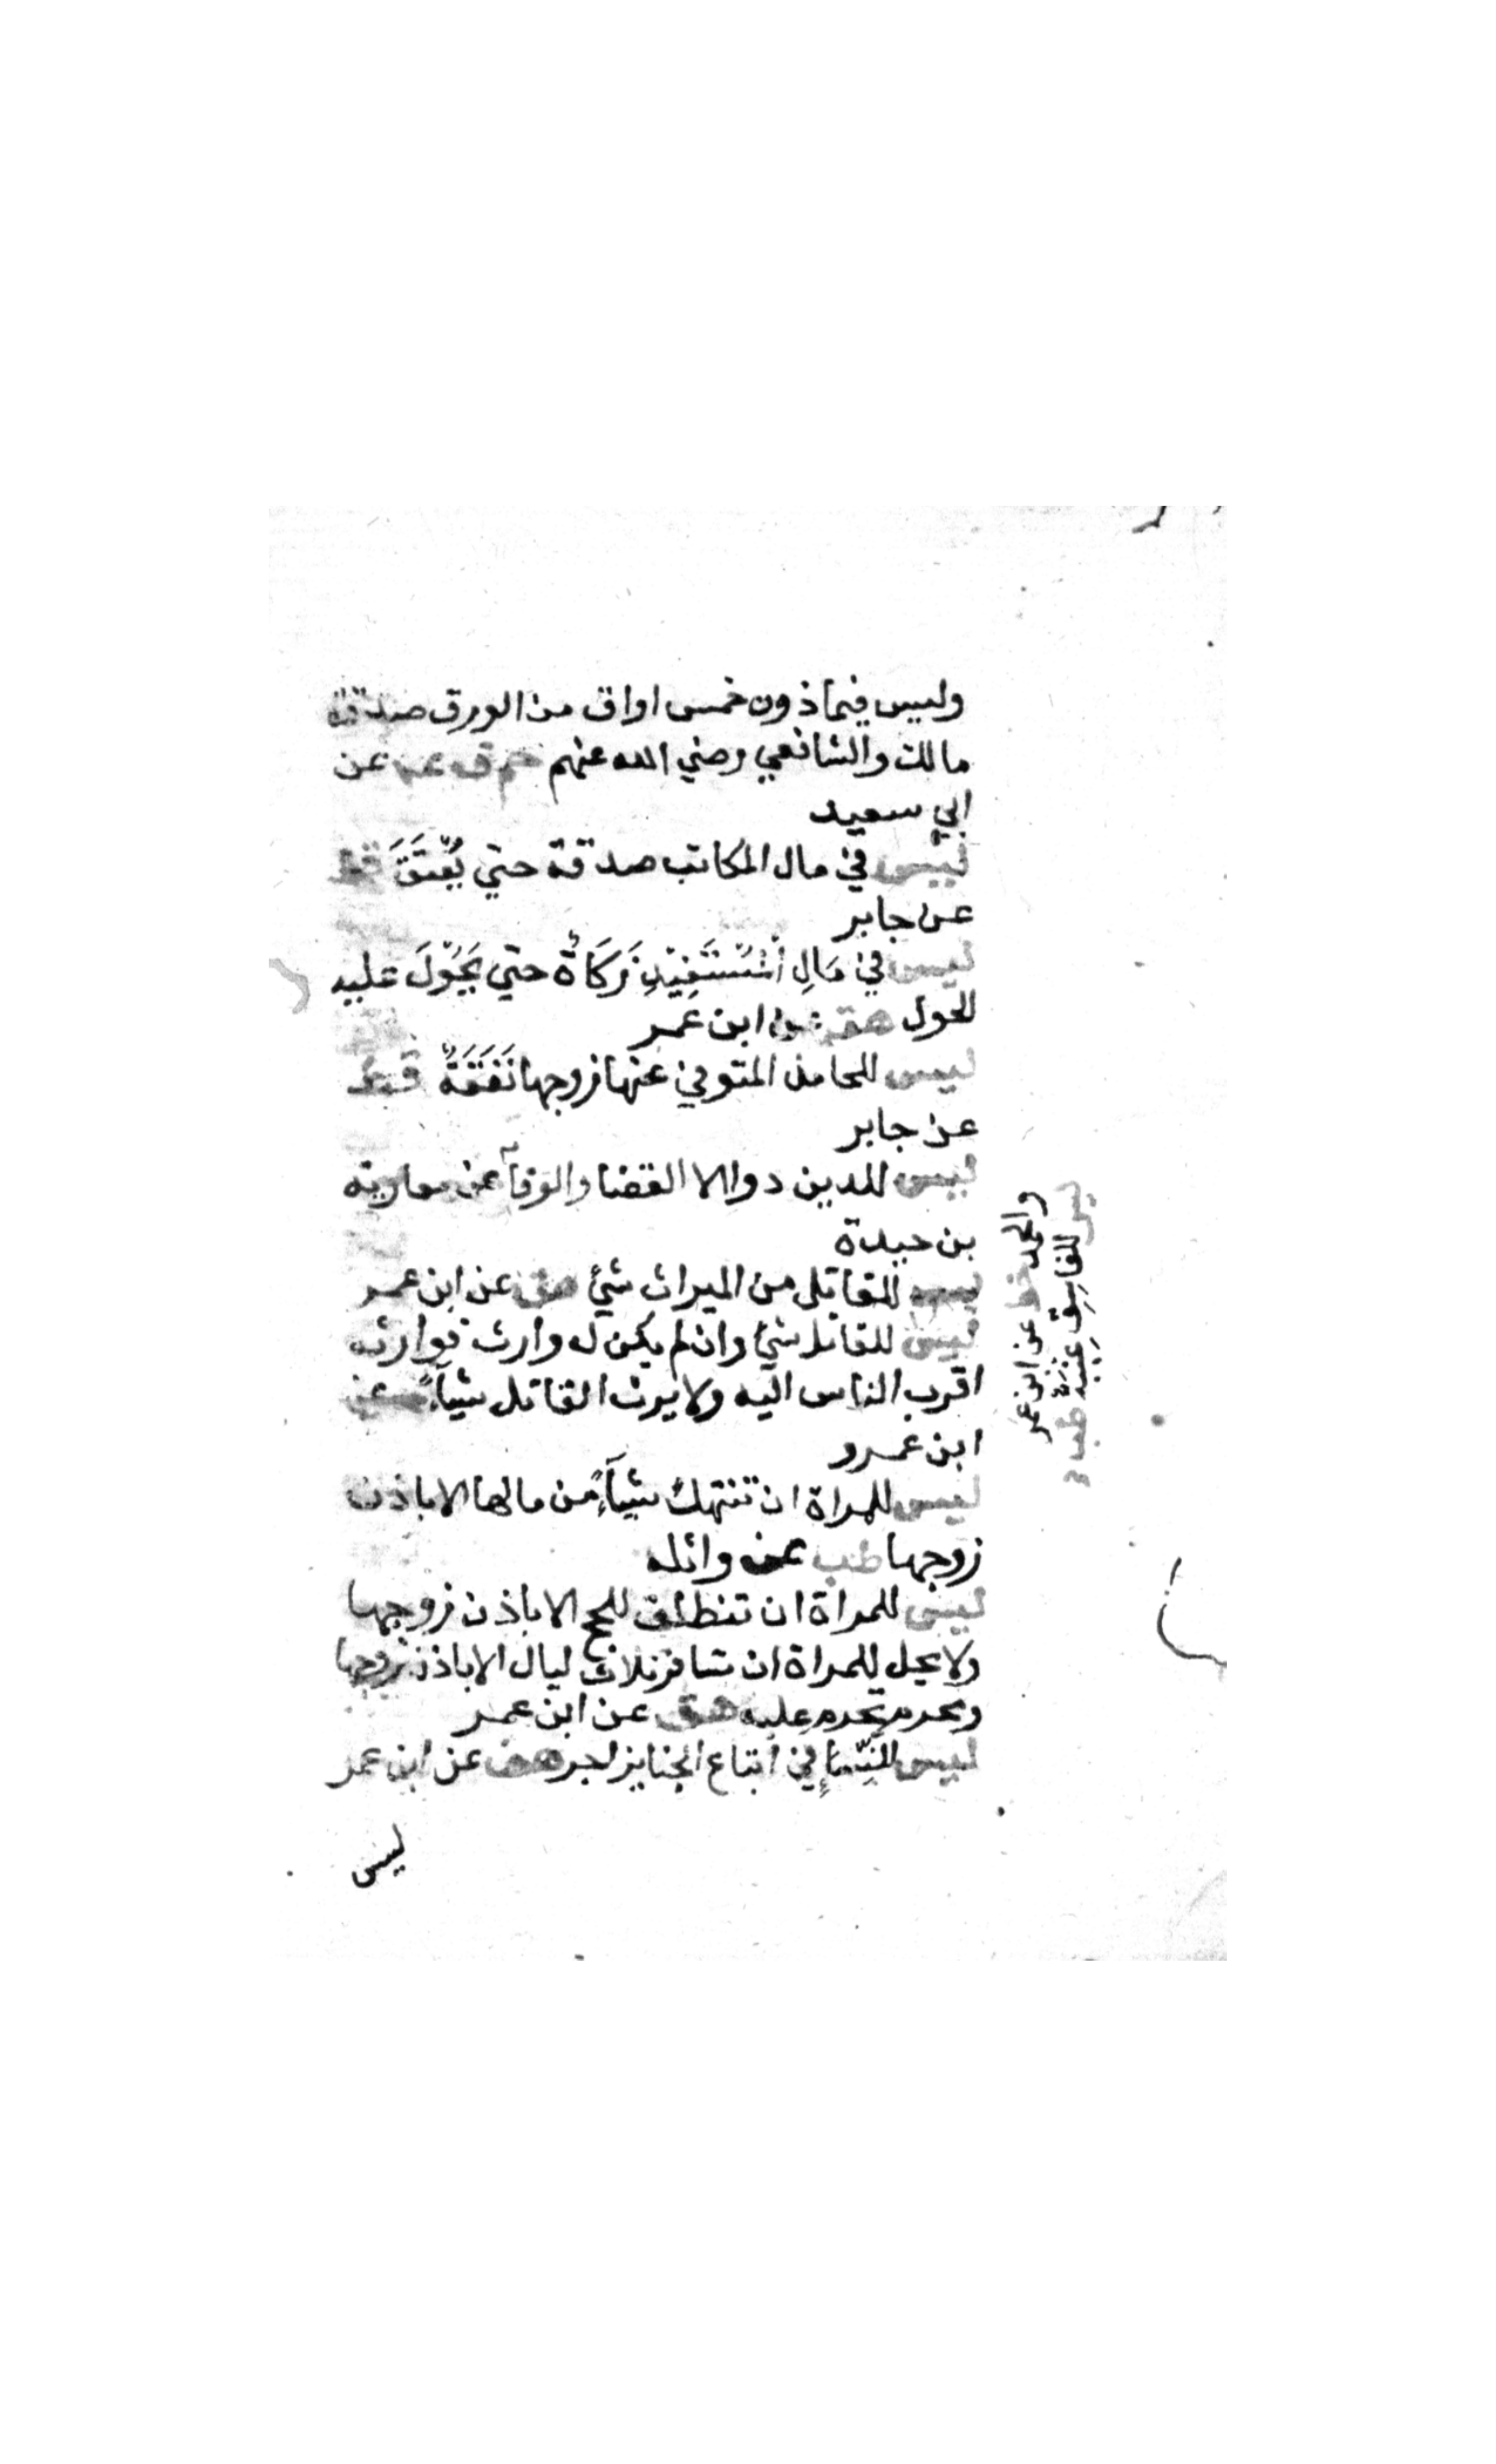 وليس فيما ذون خمس اواق من الورق صدقة
مالك والشافعي رضي الله عنهم حم ق عه عن
ابي سعيد
ليس في مال المكاتب صدقة حتي يُعْتَقَ قط
عن جابر
ليس في مَالِ المُسْتَفِيْدِ زَكَاةٌ حتي يَحُوْلَ عليه
الحول هق عن ابن عمر
ليس للحامل المتوفي عنها زوجها نَفَقَةٌ قط
عن جابر
ليس للدين دوا الا القضا والوفآ عن معاوية
بن حيدة
ليس للقاتل من الميراث شئ هق عن ابن عمر
ليس للقاتل شئ وان لم يكن له وارث فوارثه
اقرب الناس اليه ولا يرث القاتل شيآً عن
ابن عمرو
ليس للمراة ان تنتهك شيآً من مالها الا باذن
زوجها طب عن واثله
ليس للمراة ان تنطلق للحج الا باذن زوجها
ولا يحل للمراة ان تسافر ثلاث ليال الا باذن زوجها
ومحرم تحرم عليه هق عن ابن عمر
ليس للنِّسَآءِ في اتباع الجنايز اجر هق عن ابن عمر
ليس
ليس للفاسِقِ غِيْبَةٌ طب
والحد خط عن ابن عمر